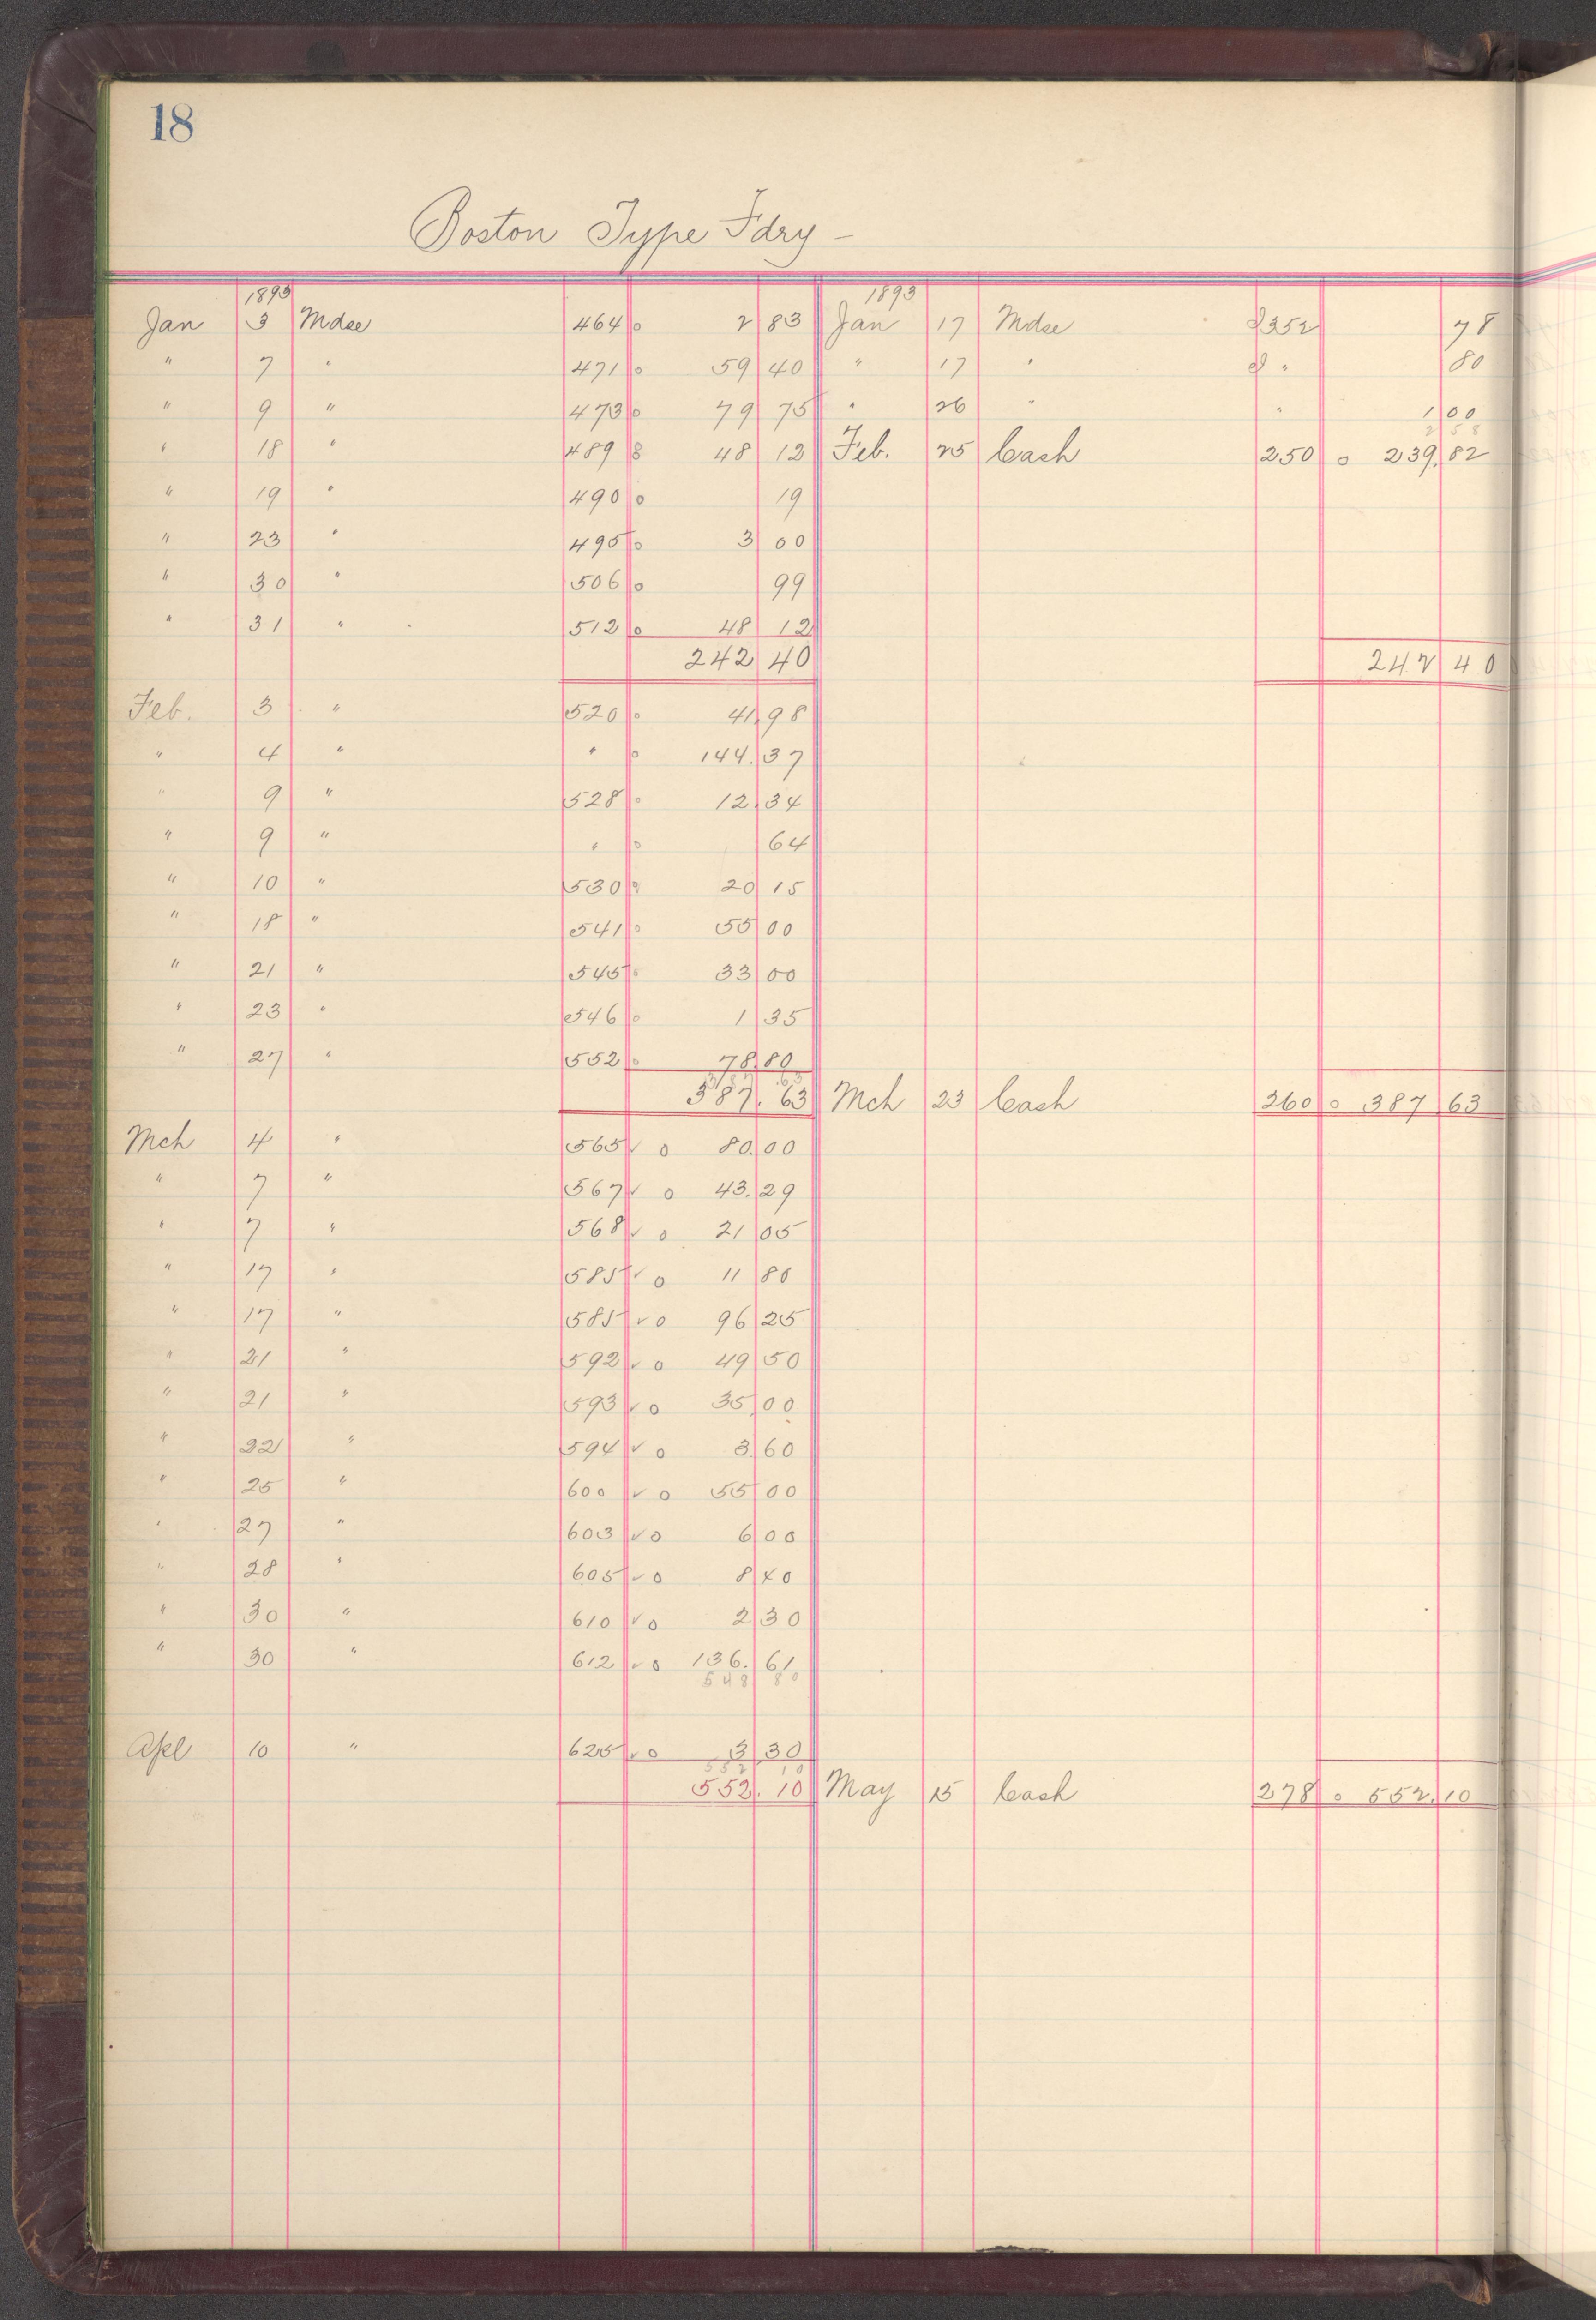 18
Boston Type Fdry —
1893 1893
Jan 3 Mdse 464 o 2 83 Jan 17 Mdse 352 78
" 7 " 471 o 59 40 " 17 " " 80
" 9 " 473 o 79 75 " 26 " " 1 00
2 58
" 18 " 489 8 48 12 Feb. 25 Cash 250 o 239.82
" 19 " 490 o 19
" 23 " 495 o 3 00
" 30 " 506 o 99
" 31 " 512 o 48 12
242 40 242 40
Feb. 3 " 520 o 41.98
" 4 " " o 144.37
" 9 " 528 o 12.34
" 9 " " o 64
" 10 " 530 o 20 15
" 18 " 541 o 55 00
" 21 " 545 o 33 00
" 23 " 546 o 1 35
" 27 " 552 o 78.80
387. 63 Mch 23 Cash 260 o 387 63
Mch 4 " 565 ✓ o 80.00
" 7 " 567 ✓ o 43.29
" 7 " 568 ✓ o 21 05
" 17 " 585 ✓ o 11 80
" 17 " 585 ✓ o 96 25
" 21 " 592 ✓ o 49 50
" 21 " 593 ✓ o 35.00
" 22 " 594 ✓ o 3.60
" 25 " 600 ✓ o 55 00
" 27 " 603 ✓ o 6 00
" 28 " 605 ✓ o 8 40
" 30 " 610 ✓ o 2 30
" 30 " 612 ✓ o 136. 61
548 80
Apl 10 " 625 ✓ o 3.30
552 10
552. 10 May 15 Cash 278 o 552.10